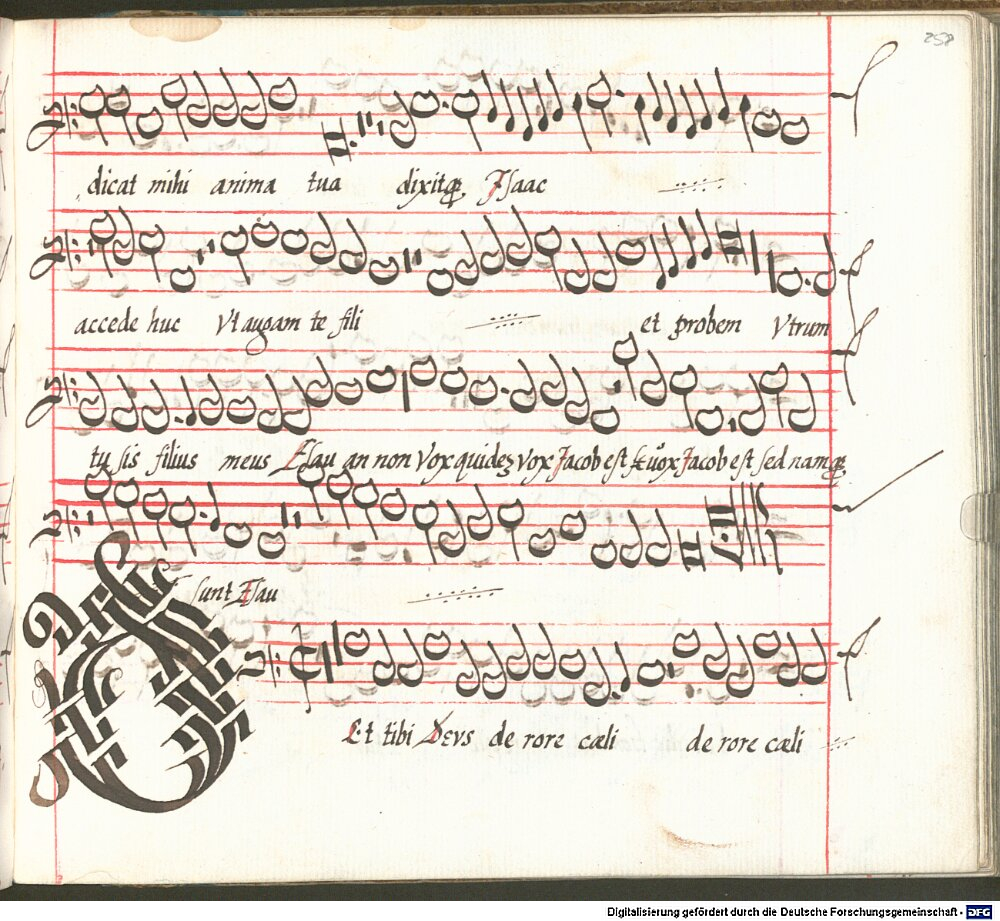 258
dicat mihi anima tua dixitq₃ Isaac
accede huc Vt tangam te fili et probem Vtrum
tu sis filius meus Esau an non Vox quidez vox Jacob est Vox Jacob est sed manq₃
sunt Esau
Et tibi Devs de rore cæli de rore cæli
Digitalisierung gefördert durch die Deutsche Forschungsgemeinschaft - DFG